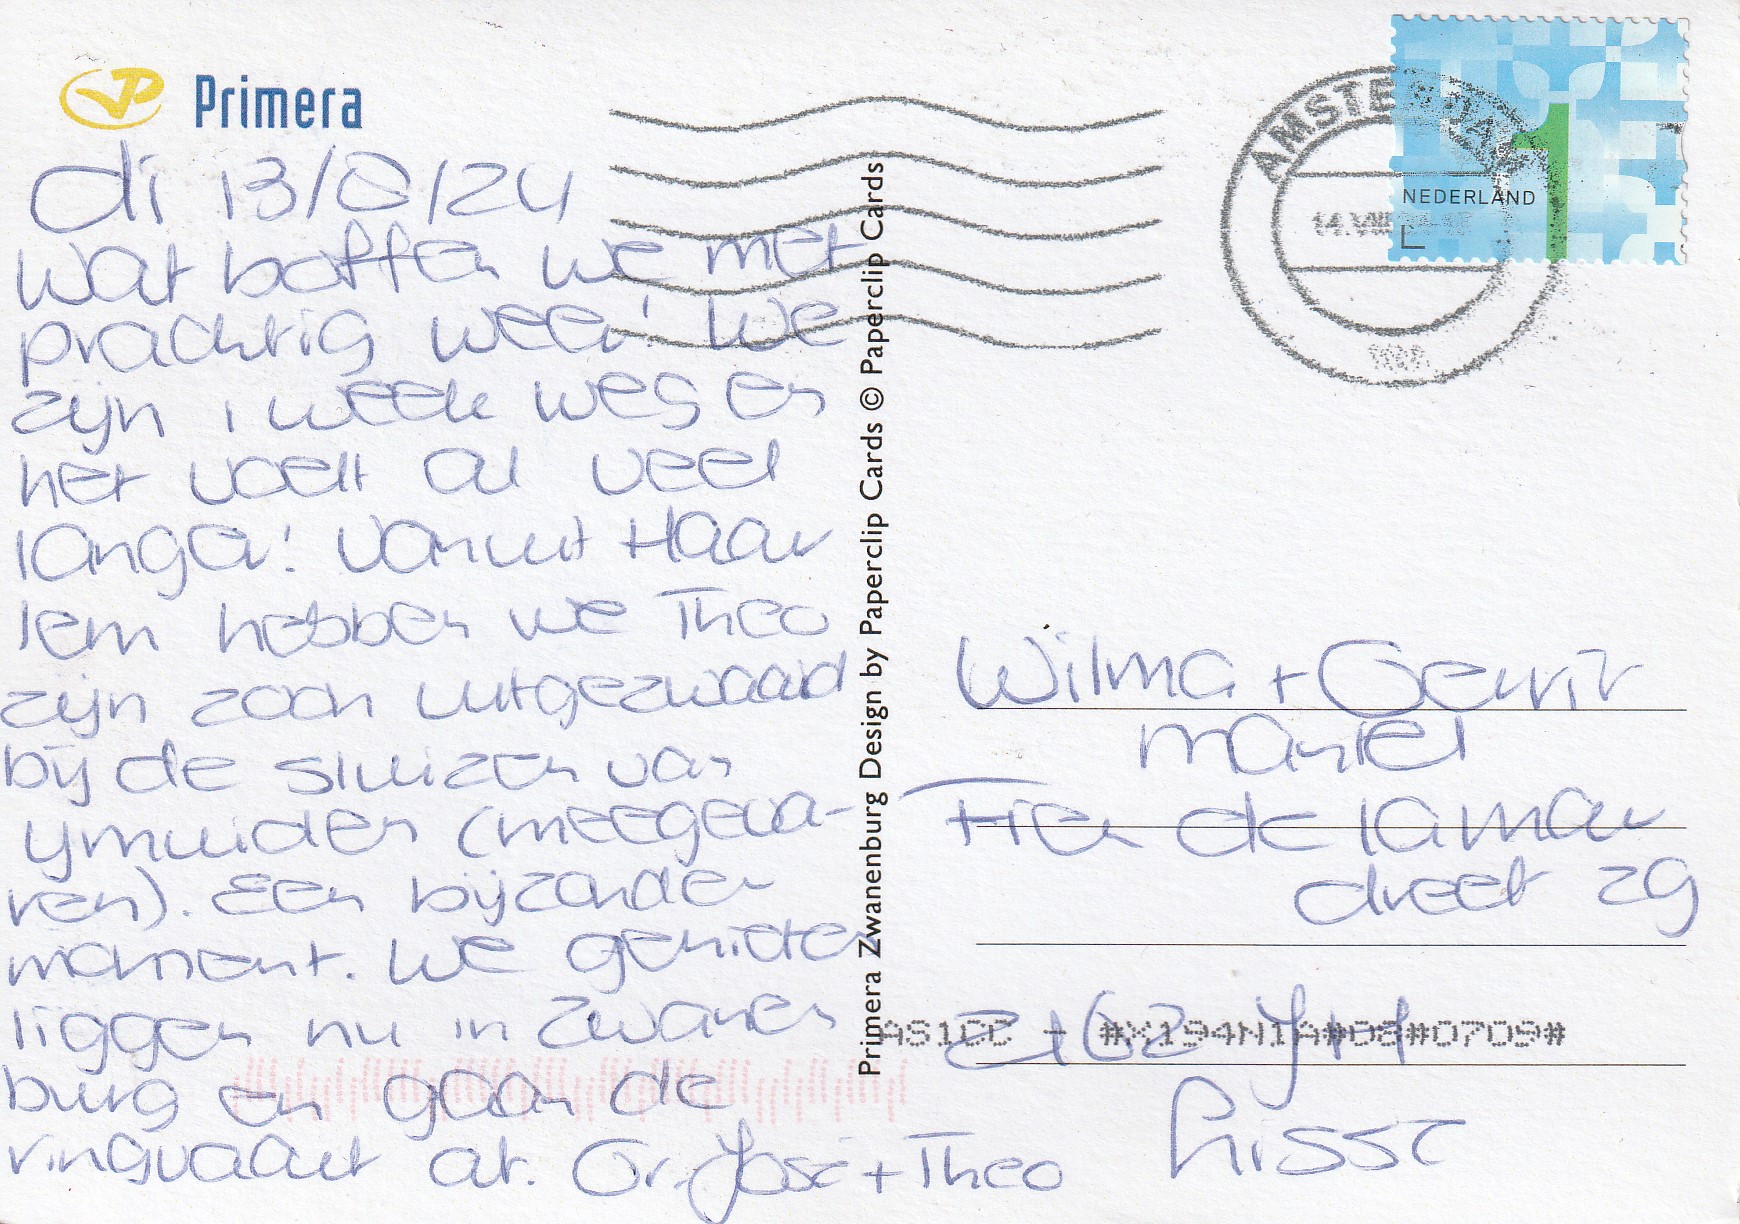 Primera
di 13/8/24
wat boffen we met
prachtig weer! We
zijn 1 week weg en
het voelt al veel
langer! Vanuit Haar
lem hebben we Theo
zijn zoon uitgezwaaid
bij de sluizen van
ijmuiden (meegeva-
ren). Een bijzonder
moment. We genieten
liggen nu in Zwanen
burg en gaan de
ringvaart af. Gr. José + Theo
Primera Zwanenburg Design by Paperclip Cards © Paperclip Cards
AMSTERDAM
NEDERLAND
1
Wilma + Gerrit
Mantel
Fien de la mar
dreef 29
2162
AS1CC - #X194N1A#08#0709#
Lisse